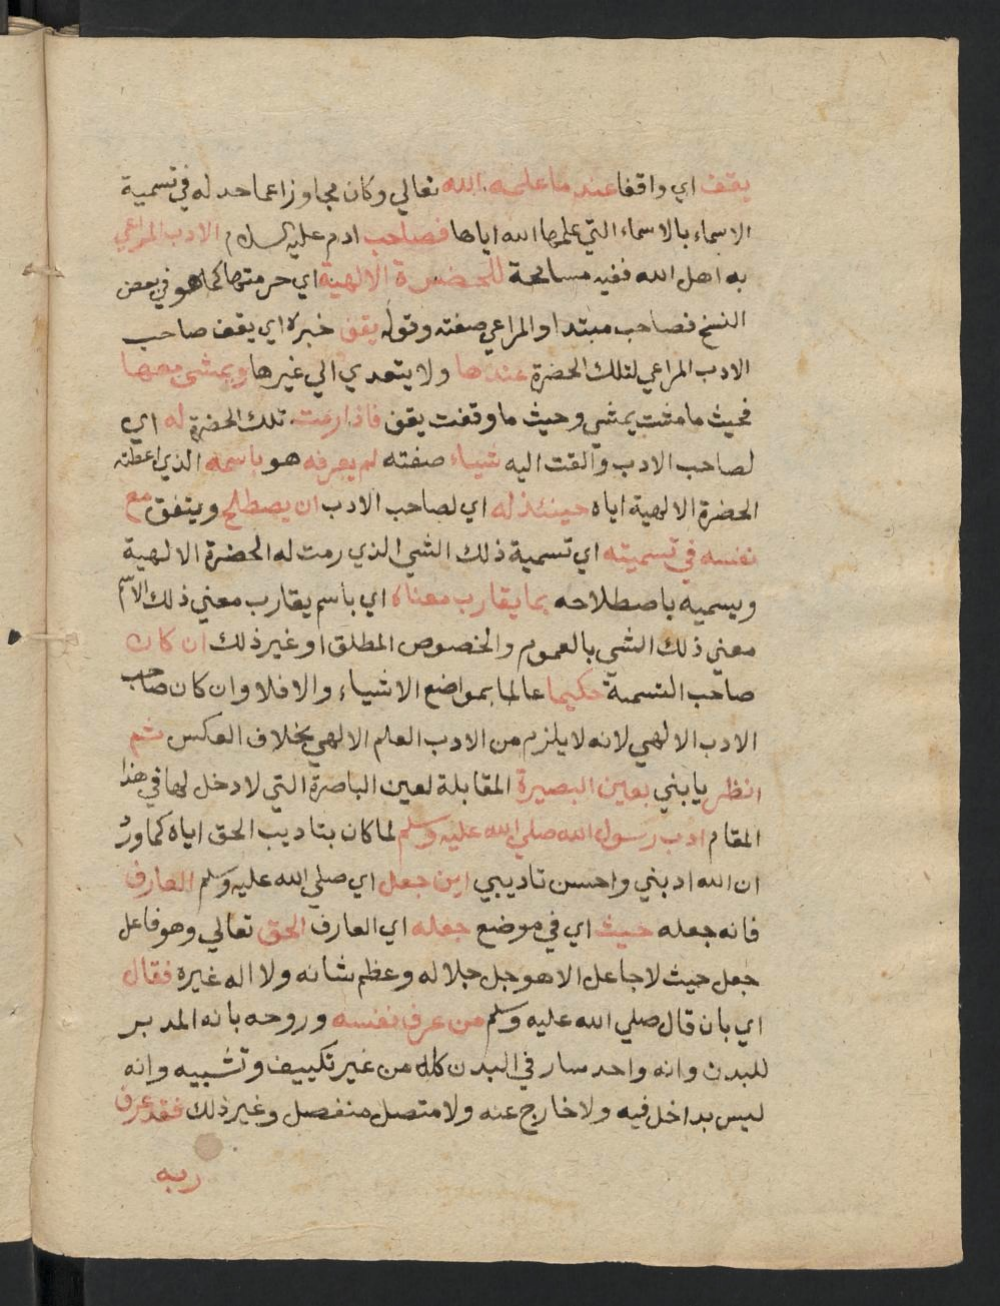 يقف اي واقفا عند ما علمه الله تعالي وكان مجاوزا عما حد له في تسمية
الاسماء بالاسماء التي علمها الله اياها فصاحب ادم عليه السلام الادب المراعي
به اهل الله ففيه مسامحة للحضرة الالهية اي حرمتها كما هو في بعض
النسخ فصاحب مبتدا والمراعي صفته وقوله يقف خبره اي يقف صاحب
الادب المراعي لتلك الحضرة عندها ولا يتعدي الي غيرها ويمشي معها
فحيث ما مشت يمشي وحيث ما وقفت يقف فاذا رمت تلك الحضرة له اي
لصاحب الادب وألقت اليه شياء صفته لم يعرفه هو باسمه الذي اعطته
الحضرة الالهية اياه حينئذ له اي لصاحب الادب ان يصطلح ويتفق مع
نفسه في تسميته اي تسمية ذلك الشي الذي رمت له الحضرة الالهية
ويسميه باصطلاحه بما يقارب معناه اي باسم يقارب معني ذلك الاسم
معني ذلك الشي بالعموم والخصوص المطلق او غير ذلك ان كان
صاحب التسمية حكيما عالما بمواضع الاشياء والا فلا وان كان صاحب
الادب الالهي لانه لا يلزم من الادب العلم الالهي بخلاف العكس ثم
انظر يا بني بعين البصيرة المقابلة لعين الباصرة التي لا دخل لها في هذا
المقام ادب رسول الله صلي الله عليه وسلم لما كان بتاديب الحق اياه كما ورد
ان الله ادبني واحسن تاديبي اين جعل اي صلي الله عليه وسلم العارف
فانه جعله حيث اي في موضع جعله اي العارف الحق تعالي وهو فاعل
جعل حيث لا جاعل الا هو جل جلاله وعظم شانه ولا اله غيره فقال
اي بان قال صلي الله عليه وسلم من عرف نفسه وروحه بانه المدبر
للبدن وانه واحد سار في البدن كله من غير تكييف وتشبيه وانه
ليس بداخل فيه ولا خارج عنه ولا متصل منفصل وغير ذلك فقد عرف
ربه